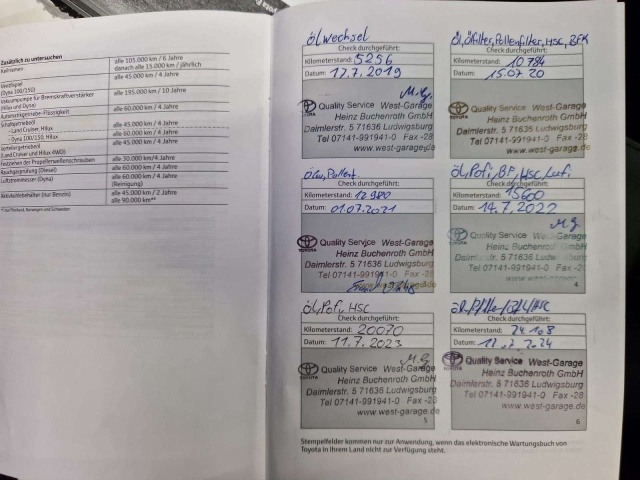 Zusätzlich zu untersuchen
Keilriemen
alle 105.000 km / 6 Jahre
danach alle 15.000 km / jährlich
Ventilspiel
(Dyna 100/150)
alle 45.000 km / 4 Jahre
Vakuumpumpe für Bremskraftverstärker
(Hilux und Dyna)
alle 195.000 km / 10 Jahre
Automatikgetriebe-Flüssigkeit
alle 60.000 km / 4 Jahre
Schaltgetriebeöl
- Land Cruiser, Hilux
alle 45.000 km / 4 Jahre
- Dyna 100/150, Hilux
alle 60.000 km / 4 Jahre
Verteilergetriebeöl
(Land Cruiser und Hilux 4WD)
alle 45.000 km / 4 Jahre
Festziehen der Propellerwellenschrauben
alle 30.000 km/4 Jahre
Rauchgasprüfung (Diesel)
alle 60.000 km / 4 Jahre
Luftstrommesser (Dyna)
alle 60.000 km / 4 Jahre
(Reinigung)
Aktivkohlebehälter (nur Benzin)
alle 45.000 km / 2 Jahre
alle 90.000 km**
Ölwechsel
Check durchgeführt:
Kilometerstand: 5256
Datum: 17.7.2019
M.G.
TOYOTA
Quality Service West-Garage
Heinz Buchenroth GmbH
Daimlerstr. 5 71636 Ludwigsburg
Tel 07141-991941-0 Fax -28
www.west-garage.de
Öl, Ölfilter, Pollenfilter, HSC, BFK
Check durchgeführt:
Kilometerstand: 10784
Datum: 15.07.20
TOYOTA
Quality Service West-Garage
Heinz Buchenroth GmbH
Daimlerstr. 5 71636 Ludwigsburg
Tel 07141-991941-0 Fax -28
www.west-garage.de
Check durchgeführt:
Kilometerstand: 12980
Datum: 01.07.2021
TOYOTA
Quality Service West-Garage
Heinz Buchenroth GmbH
Daimlerstr. 5 71636 Ludwigsburg
Tel 07141-991941-0 Fax -28
Öl, Pofi, BF, HSC, Lufi
Check durchgeführt:
Kilometerstand: 15600
Datum: 14.7.2022
M.G.
TOYOTA
Quality Service West-Garage
Heinz Buchenroth GmbH
Daimlerstr. 5 71636 Ludwigsburg
Tel 07141-991941-0 Fax -28
www.west-garage.de
4
Öl, Pofi, HSC
Check durchgeführt:
Kilometerstand: 20070
Datum: 11.7.2023
M.G.
TOYOTA
Quality Service West-Garage
Heinz Buchenroth GmbH
Daimlerstr. 5 71636 Ludwigsburg
Tel 07141-991941-0 Fax -28
www.west-garage.de
5
Check durchgeführt:
Kilometerstand: 24108
Datum: 2024
TOYOTA
Quality Service West-Garage
Heinz Buchenroth GmbH
Daimlerstr. 5 71636 Ludwigsburg
Tel 07141-991941-0 Fax -28
www.west-garage.de
6
Stempelfelder kommen nur zur Anwendung, wenn das elektronische Wartungsbuch von
Toyota in Ihrem Land nicht zur Verfügung steht.